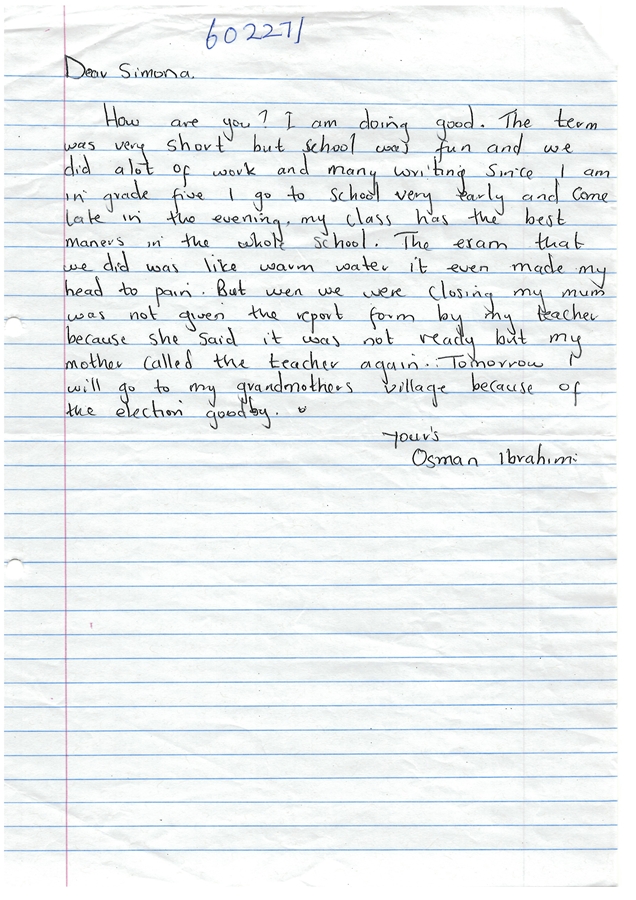 602271
Dear Simona.
How are you? I am doing good. The term
was very short but school was fun and we
did alot of work and many writing since I am
in grade five I go to school very early and come
late in the evening. my class has the best
maners in the whole school. The exam that
we did was like warm water it even made my
head to pain. But wen we were closing my mum
was not given the report form by my teacher
because she said it was not ready but my
mother called the teacher again. Tomorrow I
will go to my grandmothers village because of
the election goodby.
your's
Osman Ibrahim